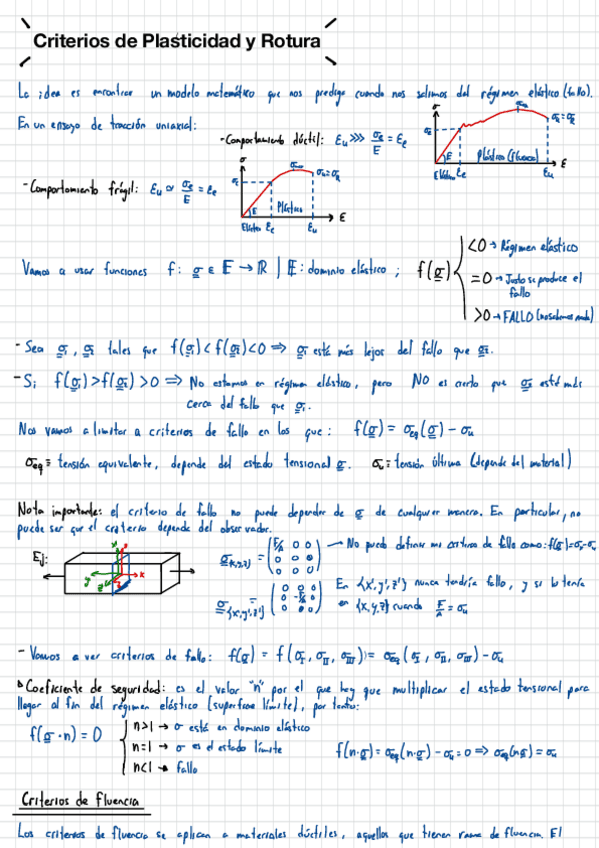 Criterios de Plasticidad y Rotura
La idea es encontrar un modelo matemático que nos prediga cuando nos salimos del régimen elástico (fallo).
En un ensayo de tracción uniaxial:
-Comportamiento dúctil: εu >>> σe/E = εe
-Comportamiento frágil: εu ∝ σe/E = εe
σ
σe
σu=σR
E
Elástico
Plástico
εe
εu
ε
σ
σe
σu=σR
E
Elástico
Plástico (fluencia)
εe
εu
ε
Vamos a usar funciones f: σ ∈ E → ℝ | E: dominio elástico ; f(σ)
<0 → Régimen elástico
=0 → Justo se produce el fallo
>0 → FALLO (no sabemos nada)
- Sea σi, σj tales que f(σi) < f(σj) < 0 ⇒ σi está más lejos del fallo que σj.
- Si f(σi) > f(σj) > 0 ⇒ No estamos en régimen elástico, pero NO es cierto que σj esté más
cerca del fallo que σi.
Nos vamos a limitar a criterios de fallo en los que: f(σ) = σeq(σ) - σu
σeq ≡ tensión equivalente, depende del estado tensional σ. σu ≡ tensión última (depende del material)
Nota importante: el criterio de fallo no puede depender de σ de cualquier manera. En particular, no
puede ser que el criterio dependa del observador.
Ej:
x' x y y' z z'
σ{x,y,z} = (F/A 0 0
0 0 0
0 0 0)
→ No puedo definir mi criterio de fallo como: f(σ)=σx-σu
σ{x',y',z'} = (0 0 0
0 F/A 0
0 0 0)
En {x',y',z'} nunca tendría fallo, y si lo tenía
en {x,y,z} cuando F/A = σu
- Vamos a ver criterios de fallo: f(σ) = f(σI, σII, σIII) = σeq(σI, σII, σIII) - σu
Coeficiente de seguridad: es el valor "n" por el que hay que multiplicar el estado tensional para
llegar al fin del régimen elástico (superficie límite), por tanto:
f(σ·n) = 0
n>1 → σ está en dominio elástico
n=1 → σ es el estado límite
n<1 → fallo
f(n·σ) = σeq(n·σ) - σu = 0 ⇒ σeq(nσ) = σu
Criterios de fluencia
Los criterios de fluencia se aplican a materiales dúctiles, aquellos que tienen rama de fluencia. El